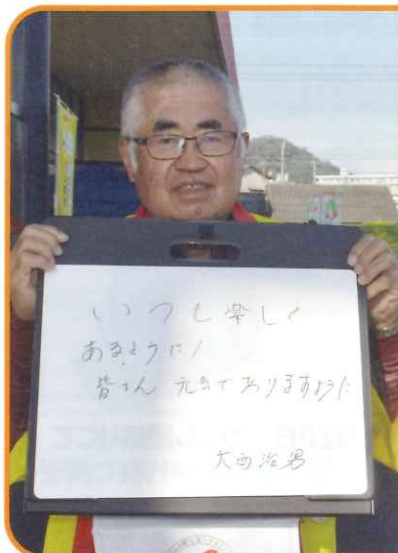 いつも楽しく
あるように!
皆さん 元気でありますように
大西治男